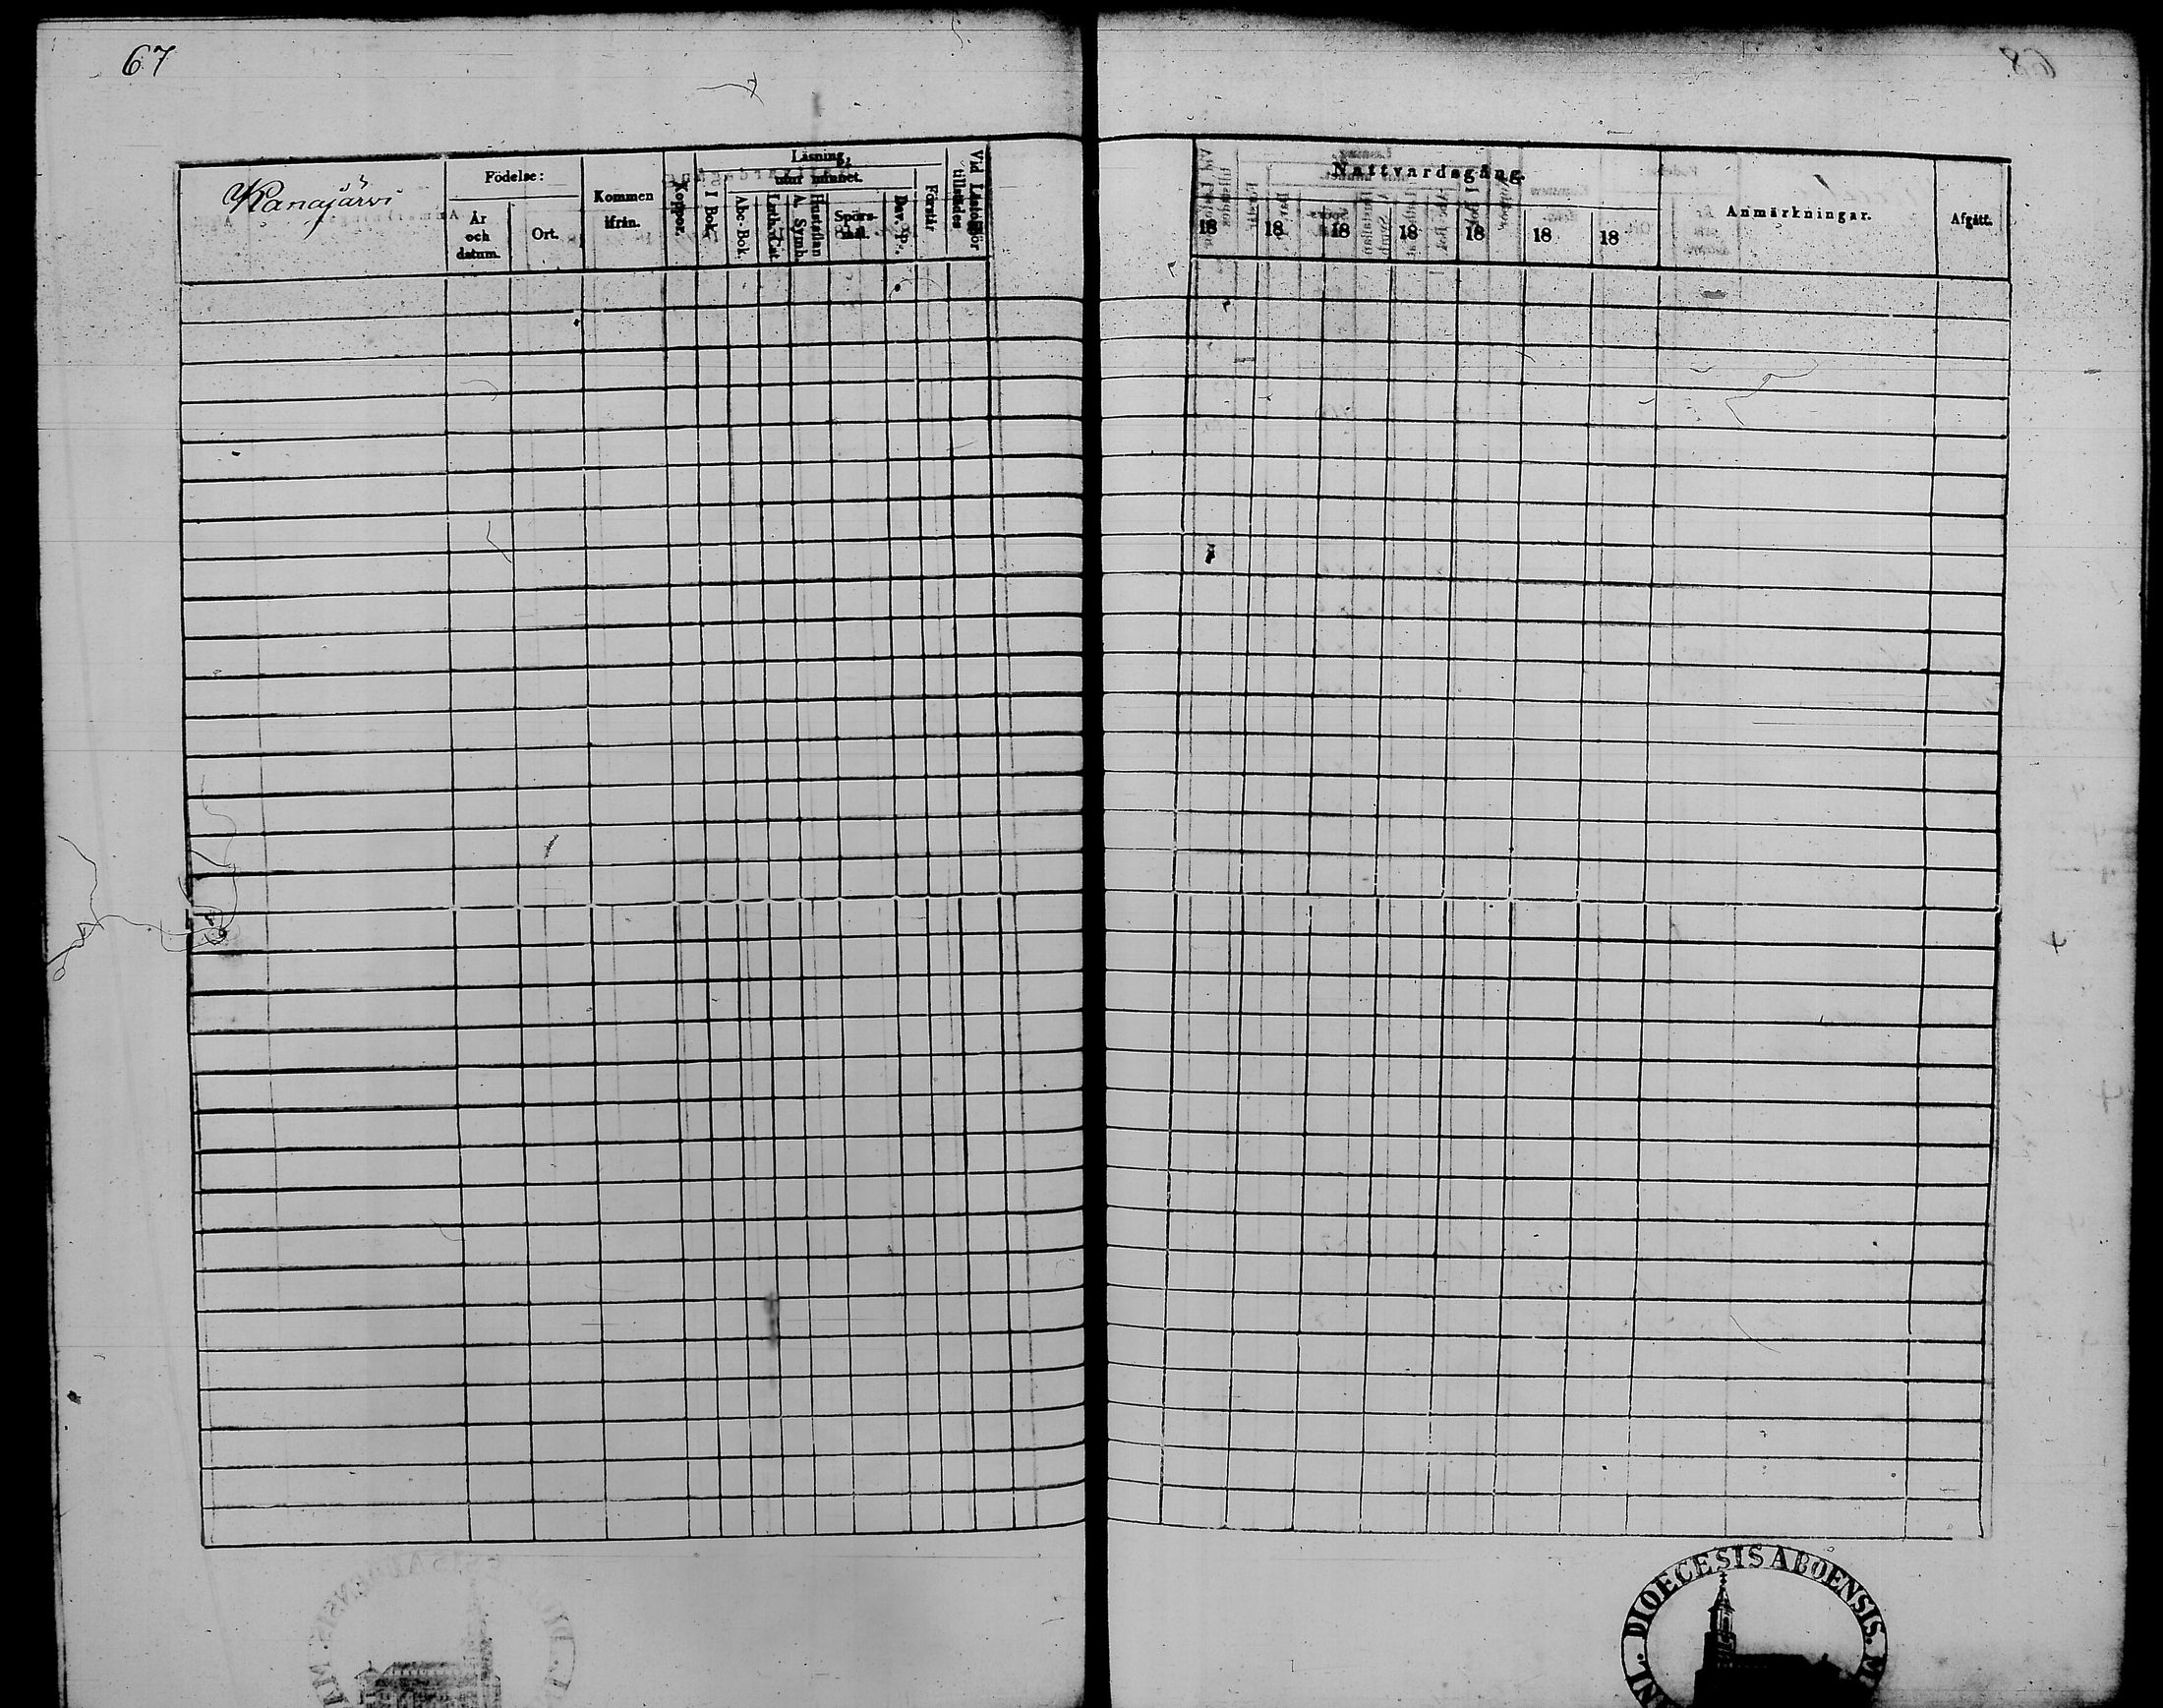 67
Kanajärvi
Födelse:
År
och
datum.
Ort.
Kommen
ifrån.
Koppor.
Läsning,
utur minnet.
I Bok.
Abc-Bok.
Luth. Cat.
Hustaflan
A. Symb.
Spörs-
mål.
Dav. Ps.
Förstår
Vid Läsförhör
tillstädes
Nattvardsgång.
18 18 18 18 18 18 18
Anmärkningar.
Afgått.
DIOECESIS ABOENSIS.